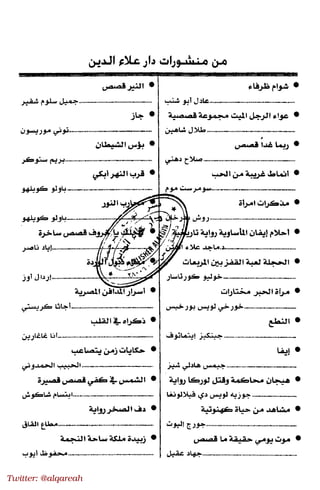 من منشورات دار علاء الدين
• شوام ظرفاء
عادل أبو شنب
• عواء الرجل الميت مجموعة قصصية
طلال شاهين
• ربما غداً قصص
صلاح دهني
• أنماط غريبة من الحب
سومرست موم
• مذكرات امرأة
• أحلام إيفان المأساوية رواية
د.ماجد علاء الدين
• الحجلة لعبة القفز بين المربعات
خوليو كورتاسار
• مرآة الحبر مختارات
خورخي لويس بورخيس
• النطع
جينكيز ايتماتوف
• إيفا
جيمس هادلي تشيز
• هيجان محاكمة وقتل لوركا رواية
جوزيه لويس دي فيلالونغا
• مشاهد من حياة كهنوتية
جورج اليوت
• موت يومي حقيقة ما قصص
جهاد عقيل
• النير قصص
جميل سلوم شقير
• جاز
توني موريسون
• بؤس الشيطان
بريم ستوكر
• قرب النهر أبكي
باولو كويلهو
• محارب النور
باولو كويلهو
• قصص ساخرة
إياد ناصر
إردال أوز
• أسرار المدافن المصرية
أجاثا كريستي
• ذكراه في القلب
آنا غاغارين
• حكايات زمن يتصاعب
الحبيب الحمدوني
• الشمس في كفي قصص قصيرة
ابتسام شاكوش
• دف الصخر رواية
مطاع القاق
• زبيدة ملكة ساحة النجمة
محفوظ أيوب
Twitter: @alqareah